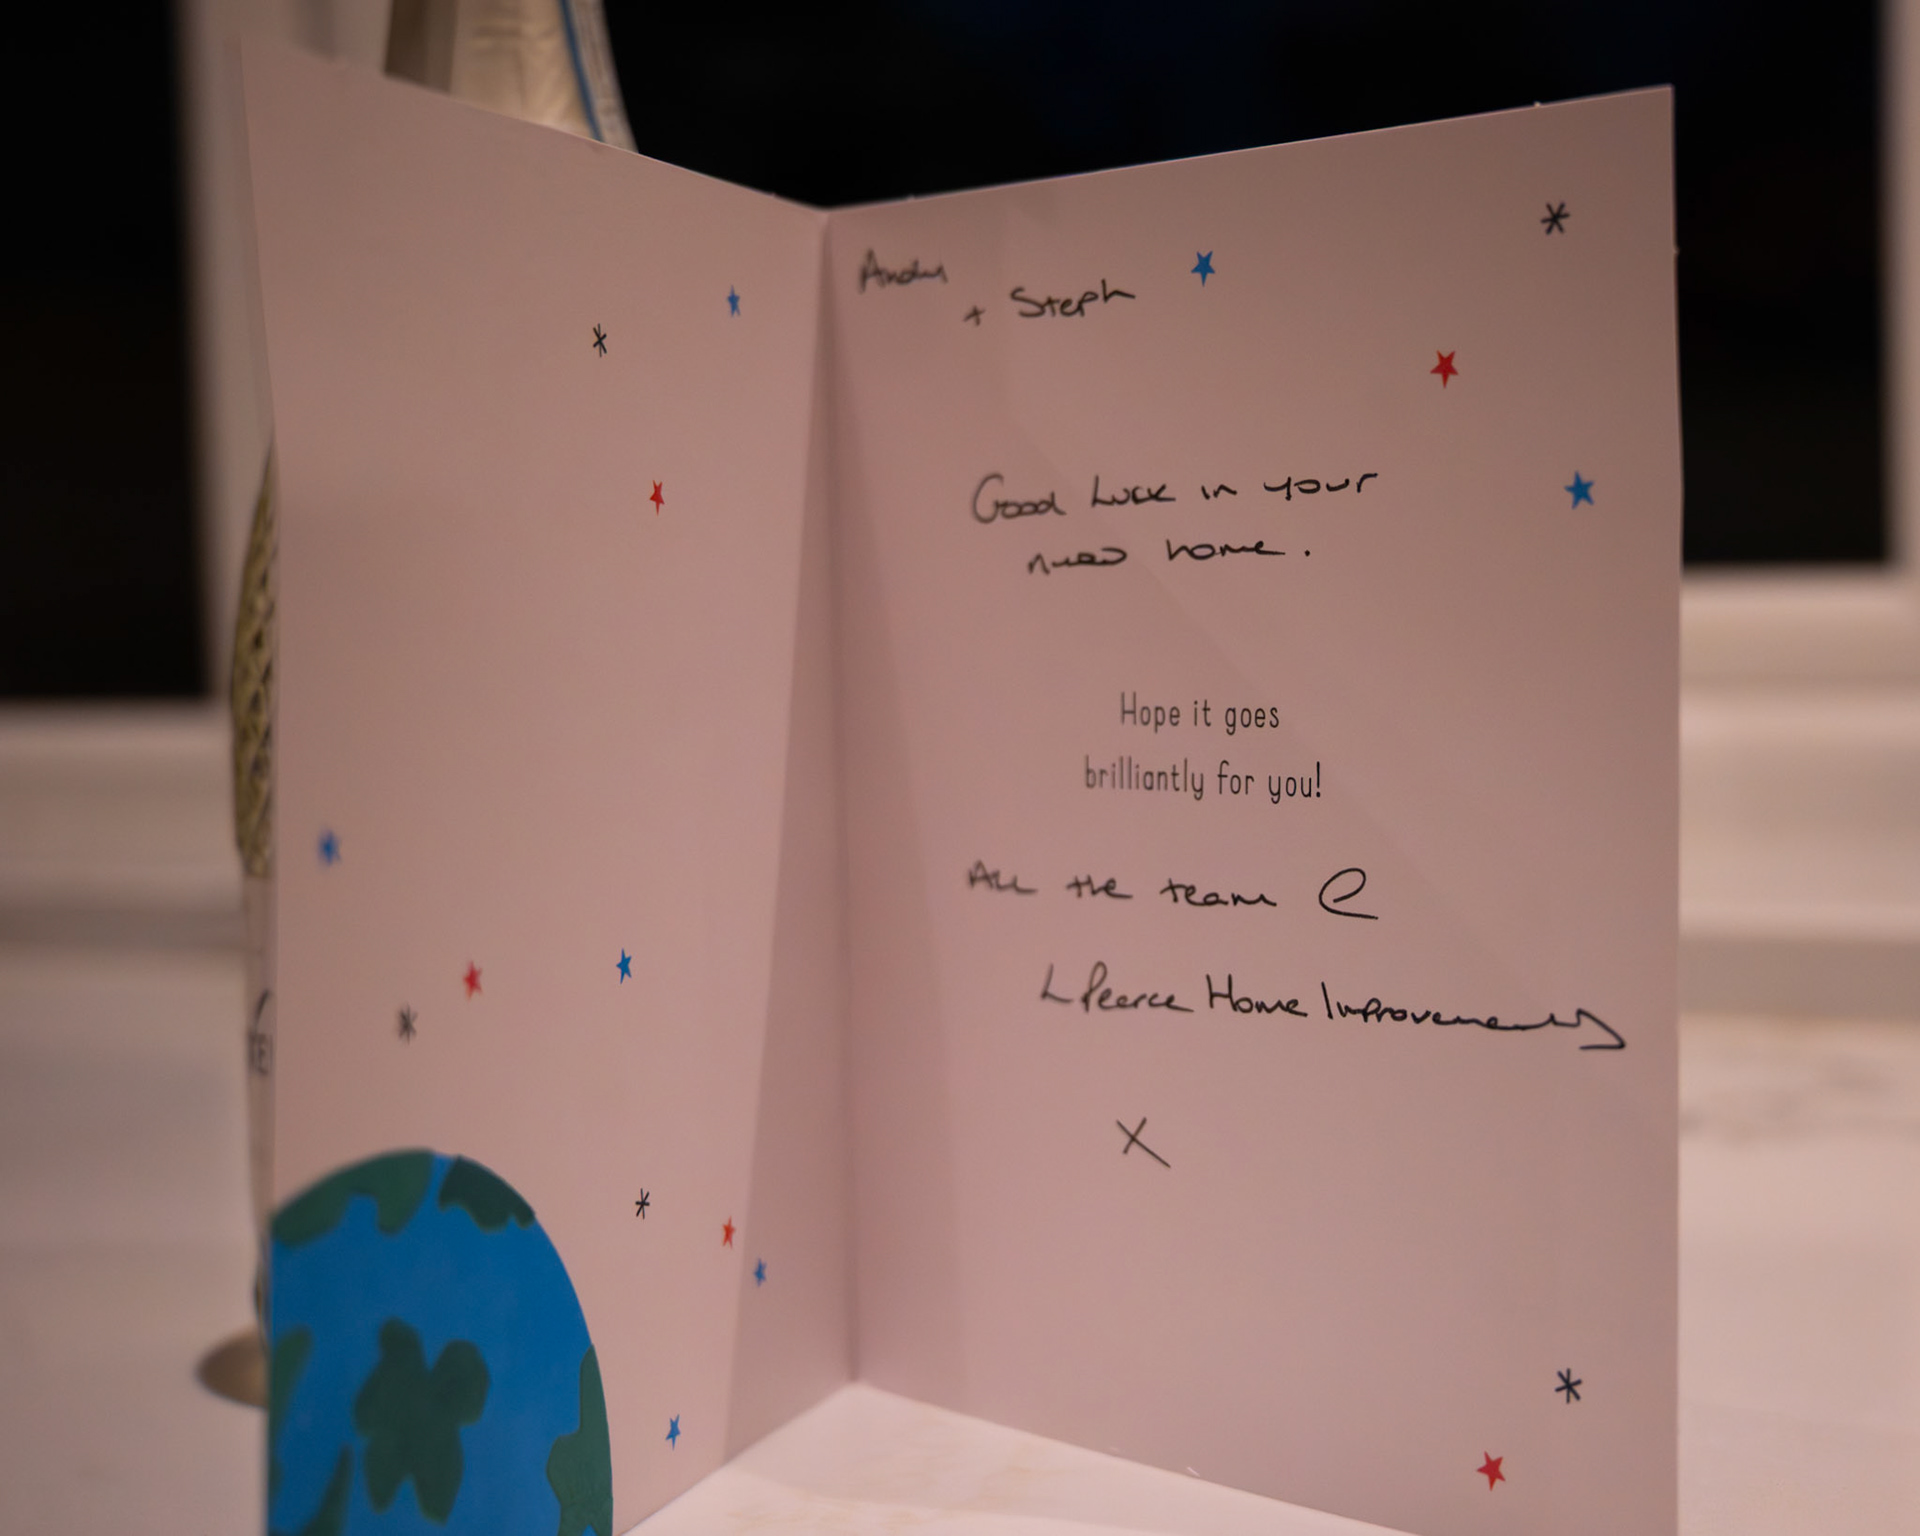 Andy
+ Steph
Good Luck in your
new home.
Hope it goes
brilliantly for you!
All the team @
L Pearce Home Improvements
X